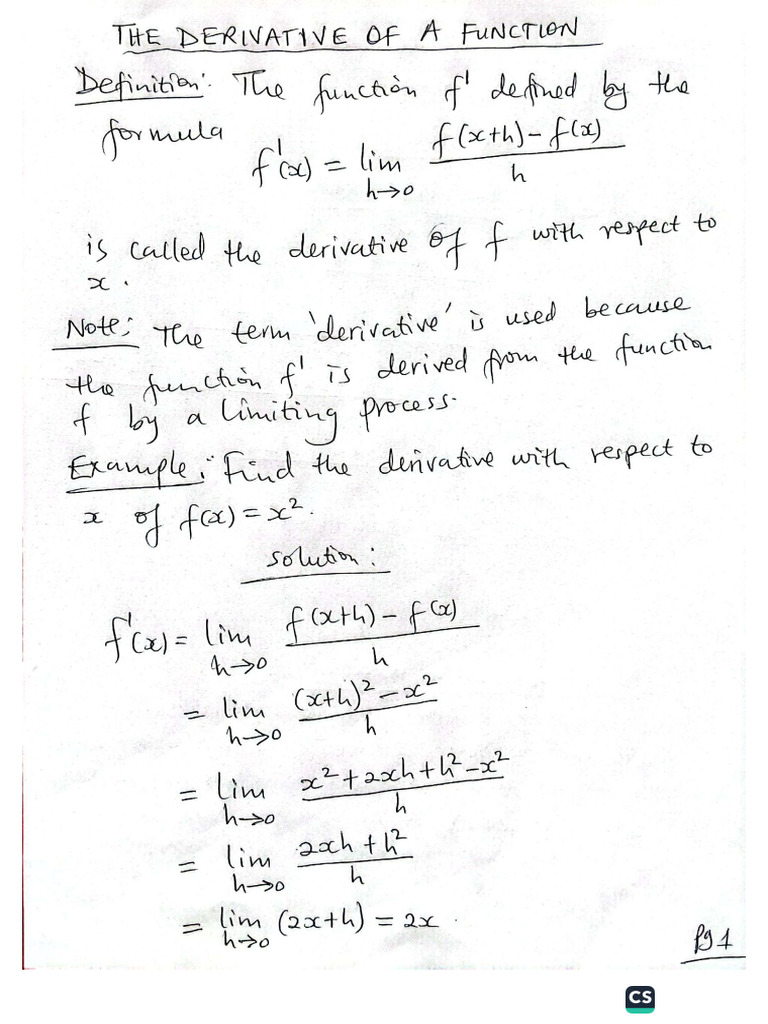 THE DERIVATIVE OF A FUNCTION
Definition: The function f' defined by the
formula
f'(x) = lim h→0 (f(x+h) - f(x))/h
is called the derivative of f with respect to
x.
Note: The term 'derivative' is used because
the function f' is derived from the function
f by a limiting process.
Example: Find the derivative with respect to
x of f(x) = x².
solution:
f'(x) = lim h→0 (f(x+h) - f(x))/h
= lim h→0 ((x+h)² - x²)/h
= lim h→0 (x² + 2xh + h² - x²)/h
= lim h→0 (2xh + h²)/h
= lim h→0 (2x+h) = 2x.
Pg 1
CS